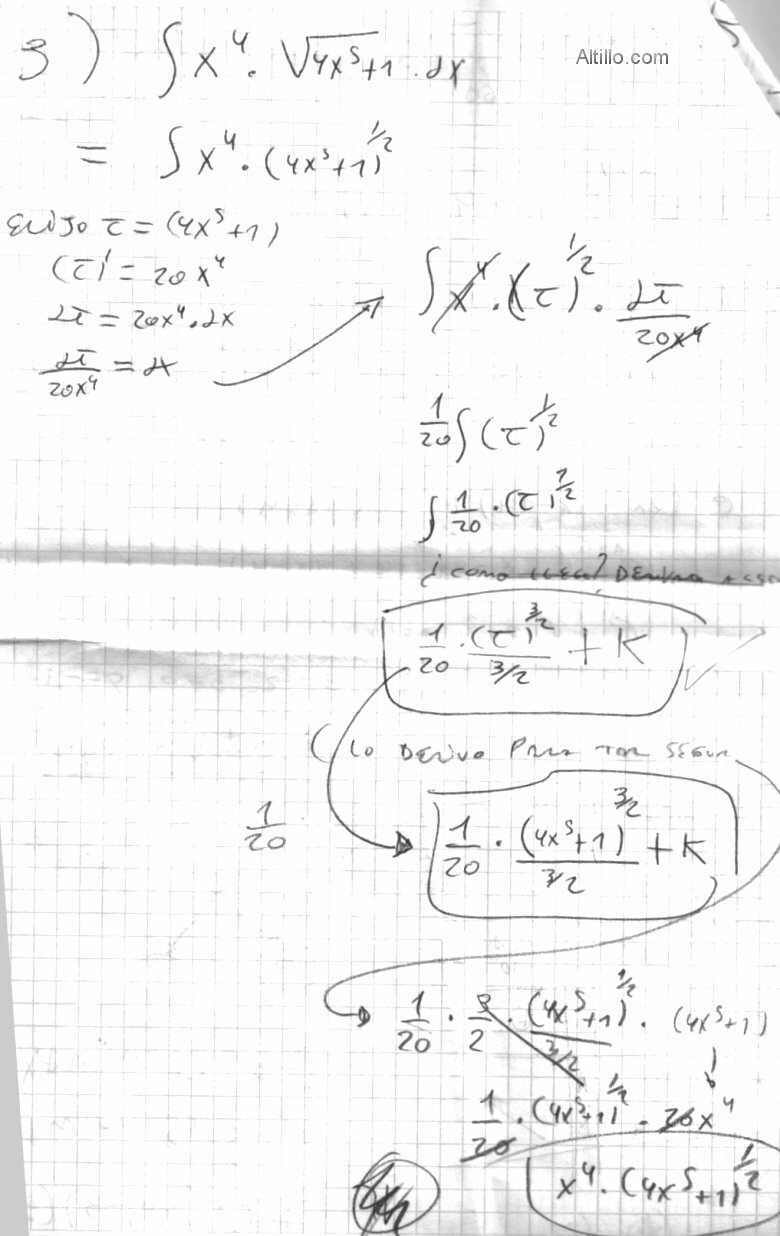 3) ∫ x⁴ · √(4x⁵+1) · dx
Altillo.com
= ∫ x⁴ · (4x⁵+1)^1/2
ELIJO τ = (4x⁵+1)
(τ)' = 20x⁴
dτ = 20x⁴ · dx
dτ/20x⁴ = dx
∫ x⁴ · (τ)^1/2 · dτ/20x⁴
1/20 ∫ (τ)^1/2
∫ 1/20 · (τ)^1/2
1/20 · (τ)^3/2 / 3/2 + K
(LO DERIVO PARA
1/20
1/20 · (4x⁵+1)^3/2 / 3/2 + K
1/20 · 3/2 · (4x⁵+1)^1/2 / 3/2 · (4x⁵+1)
1/20 · (4x⁵+1)^1/2 · 20x⁴
x⁴ · (4x⁵+1)^1/2